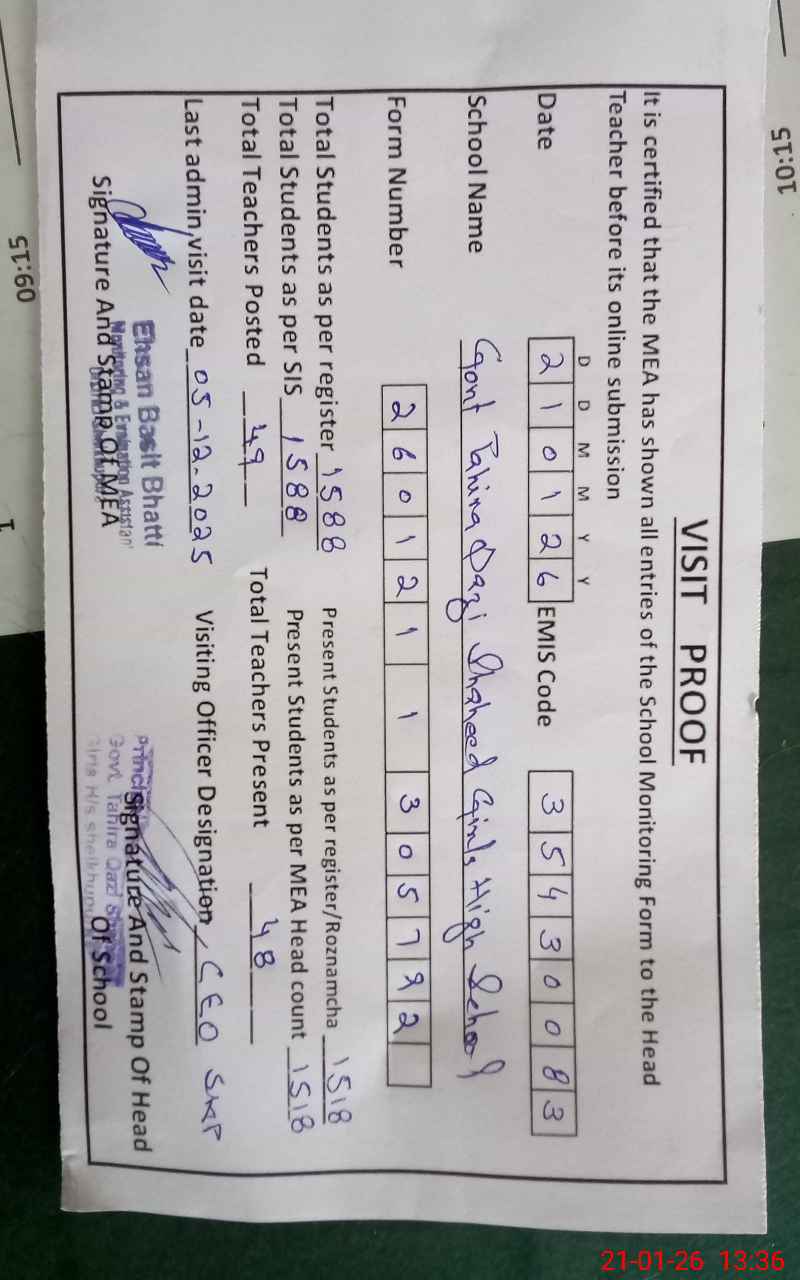 VISIT PROOF
It is certified that the MEA has shown all entries of the School Monitoring Form to the Head
Teacher before its online submission
D D M M Y Y
Date 2 1 0 1 2 6 EMIS Code 3 5 4 3 0 0 8 3
School Name Govt Tahira Qazi Shaheed Girls High School
Form Number 2 6 0 1 2 1 1 3 0 5 7 9 2
Total Students as per register 1588 Present Students as per register/Roznamcha 1518
Total Students as per SIS 1588 Present Students as per MEA Head count 1518
Total Teachers Posted 49 Total Teachers Present 48
Last admin visit date 05-12-2025 Visiting Officer Designation CEO SKP
Ehsan Basit Bhatti
Monitoring & Evaluation Assistant
Signature And Stamp Of MEA
Signature And Stamp Of Head
Of School
Govt. Tahira Qazi
Girls H/s
10:15
09:15
21-01-26 13:36